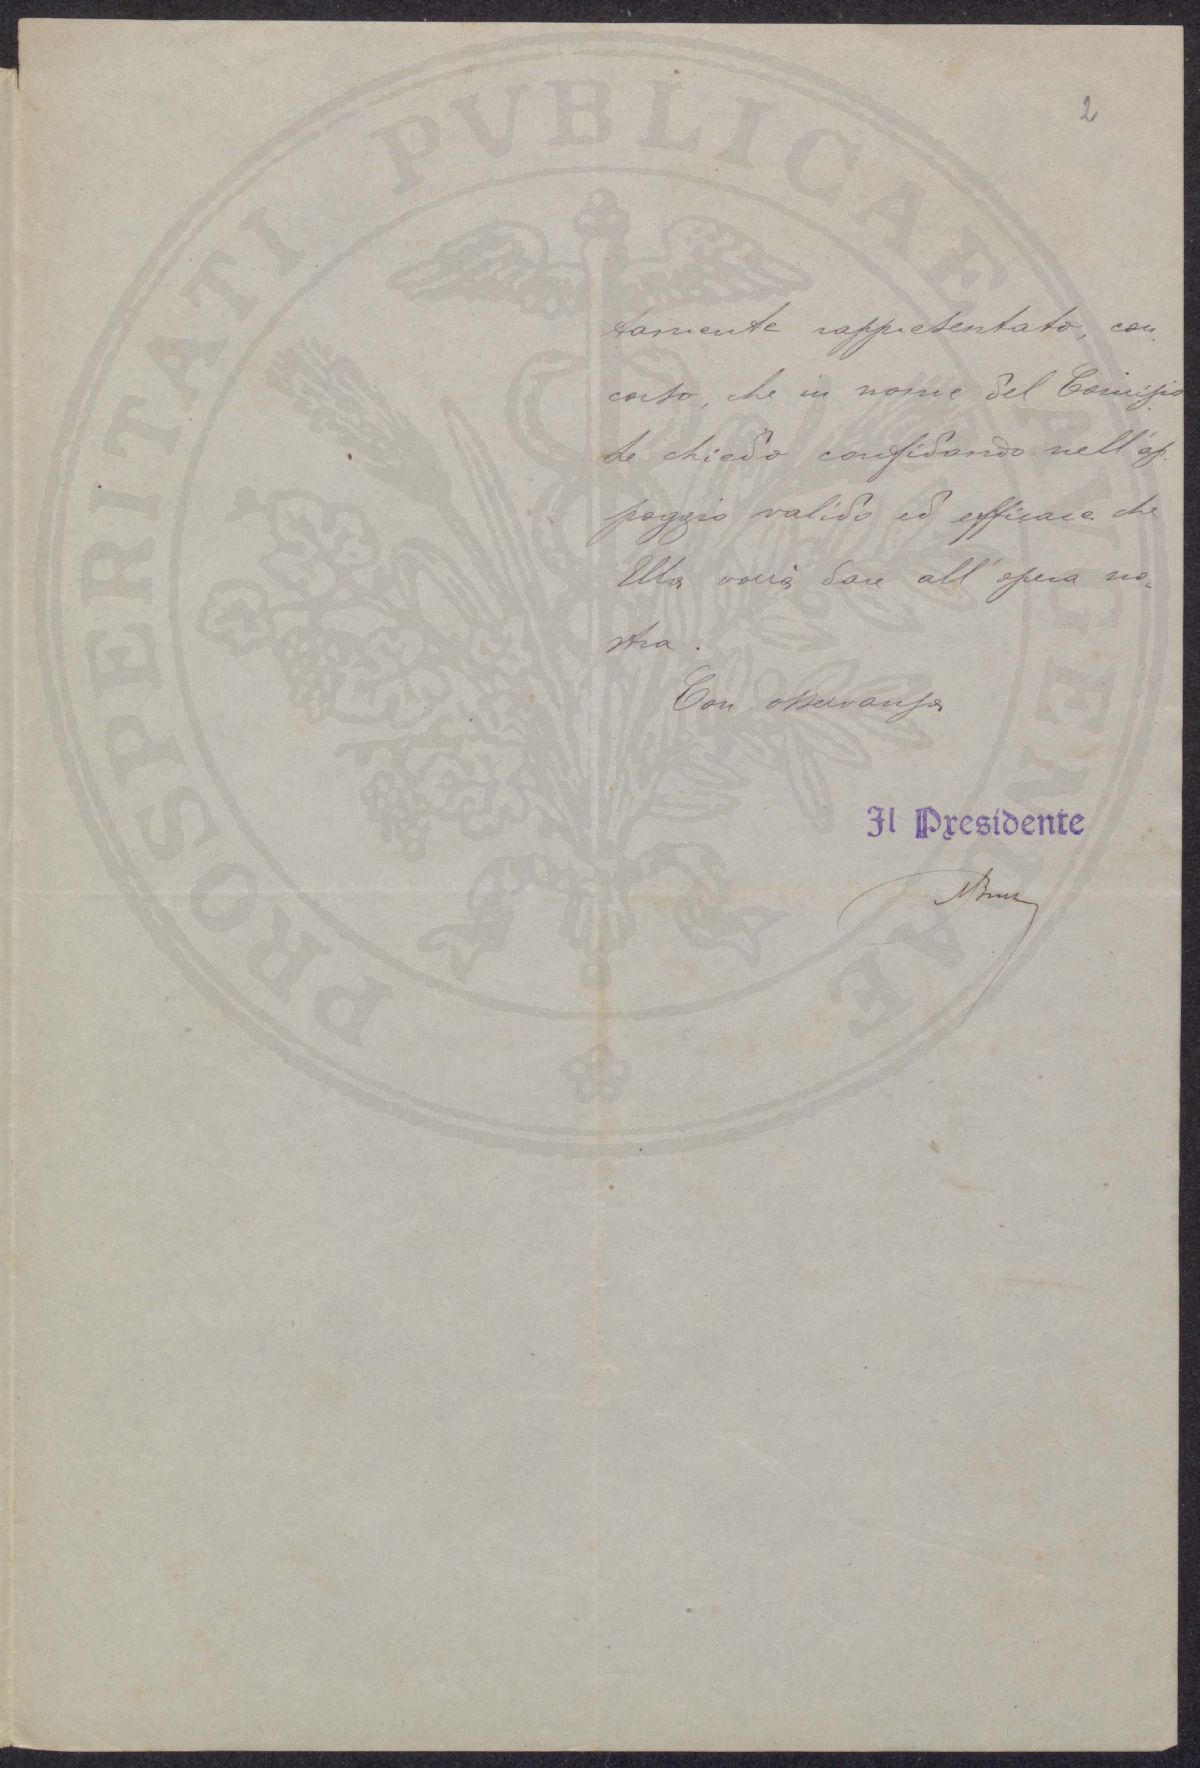 2
PROSPERITATI PVBLICAE AVGENDAE
tamente rappresentato, con.
corso, che in nome del Comizio
Le chiedo confidando nell'ap.
poggio valido ed efficace che
Ella vorrà dare all'opera no.
stra.
Con osservanza
Il Presidente